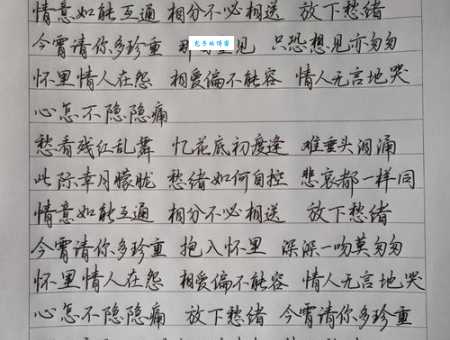 情意如能互通 相分不必相送 放下愁绪
今宵请你多珍重 那 见 只恐想见亦匆匆
怀里情人在怨 相爱偏不能容 情人无言地哭
心怎不隐隐痛
愁看残红乱舞 忆花底初度逢 难垂头泪涌
此际幸月朦胧 愁绪如何自控 悲哀都一样同
情意如能互通 相分不必相送 放下愁绪
今宵请你多珍重 抱入怀里 深深一吻莫匆匆
怀里情人在怨 相爱偏不能容 情人无言地哭
心怎不隐隐痛 放下愁绪 今宵请你多珍重